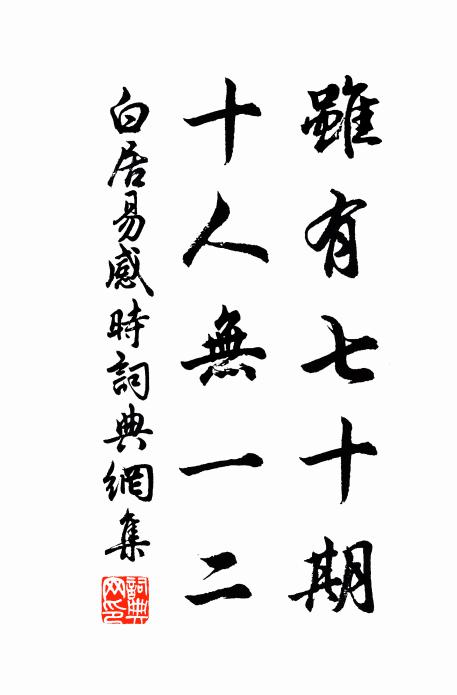 雖有七十期
十人無一二
白居易感時詞典網集
詞典
网印